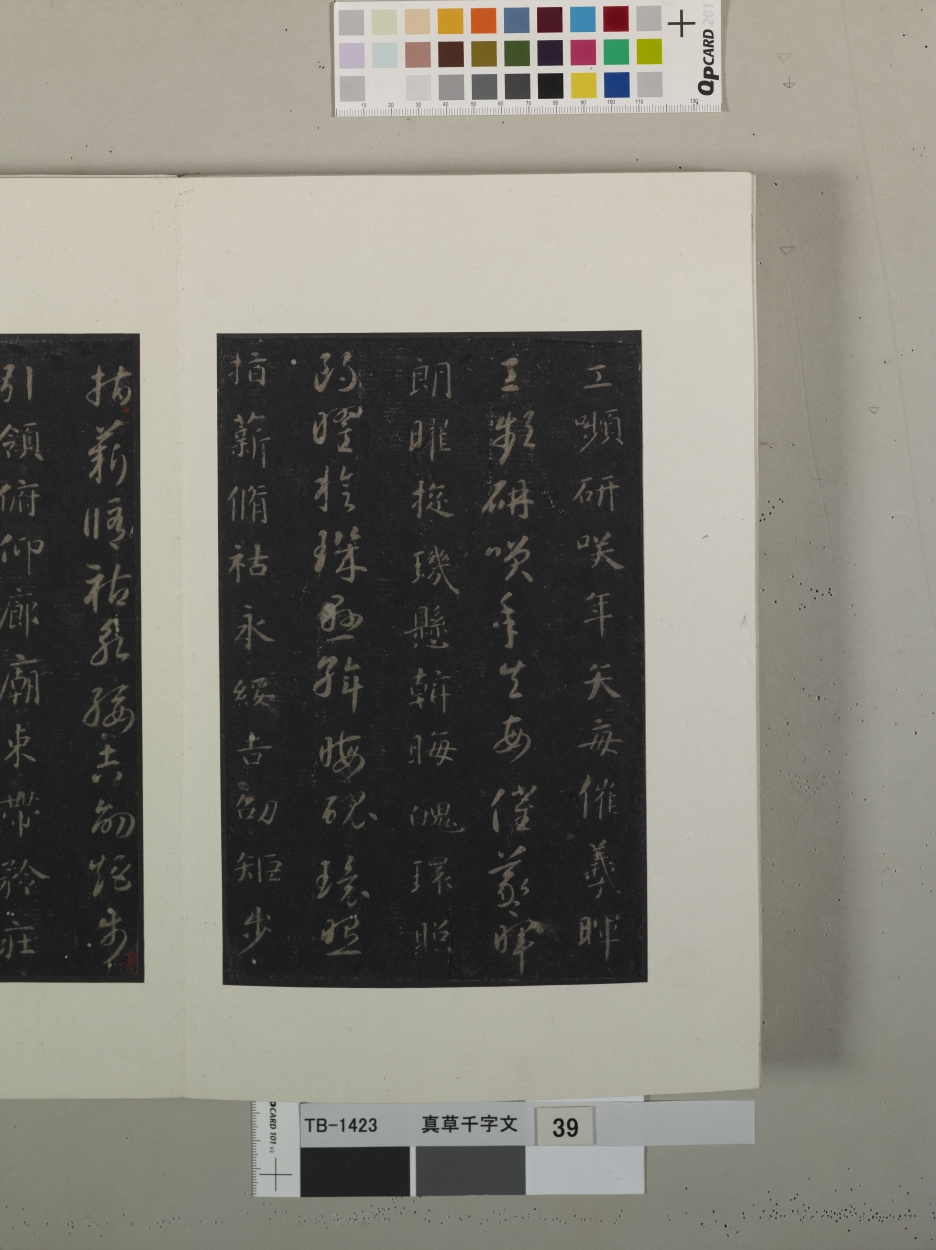 QPCARD 201
10 20 30 40 50 60 70 80 90 100 110 130
工嚬研咲年矢毎催羲暉
工嚬研咲年矢毎催羲暉
朗曜旋璣懸斡晦魄環照
朗曜旋璣懸斡晦魄環照
指薪脩祜永綏吉劭矩步
指薪脩祜永綏吉劭矩步
引領俯仰廊廟束帶矜莊
QPCARD 101 v2
TB-1423 真草千字文 39